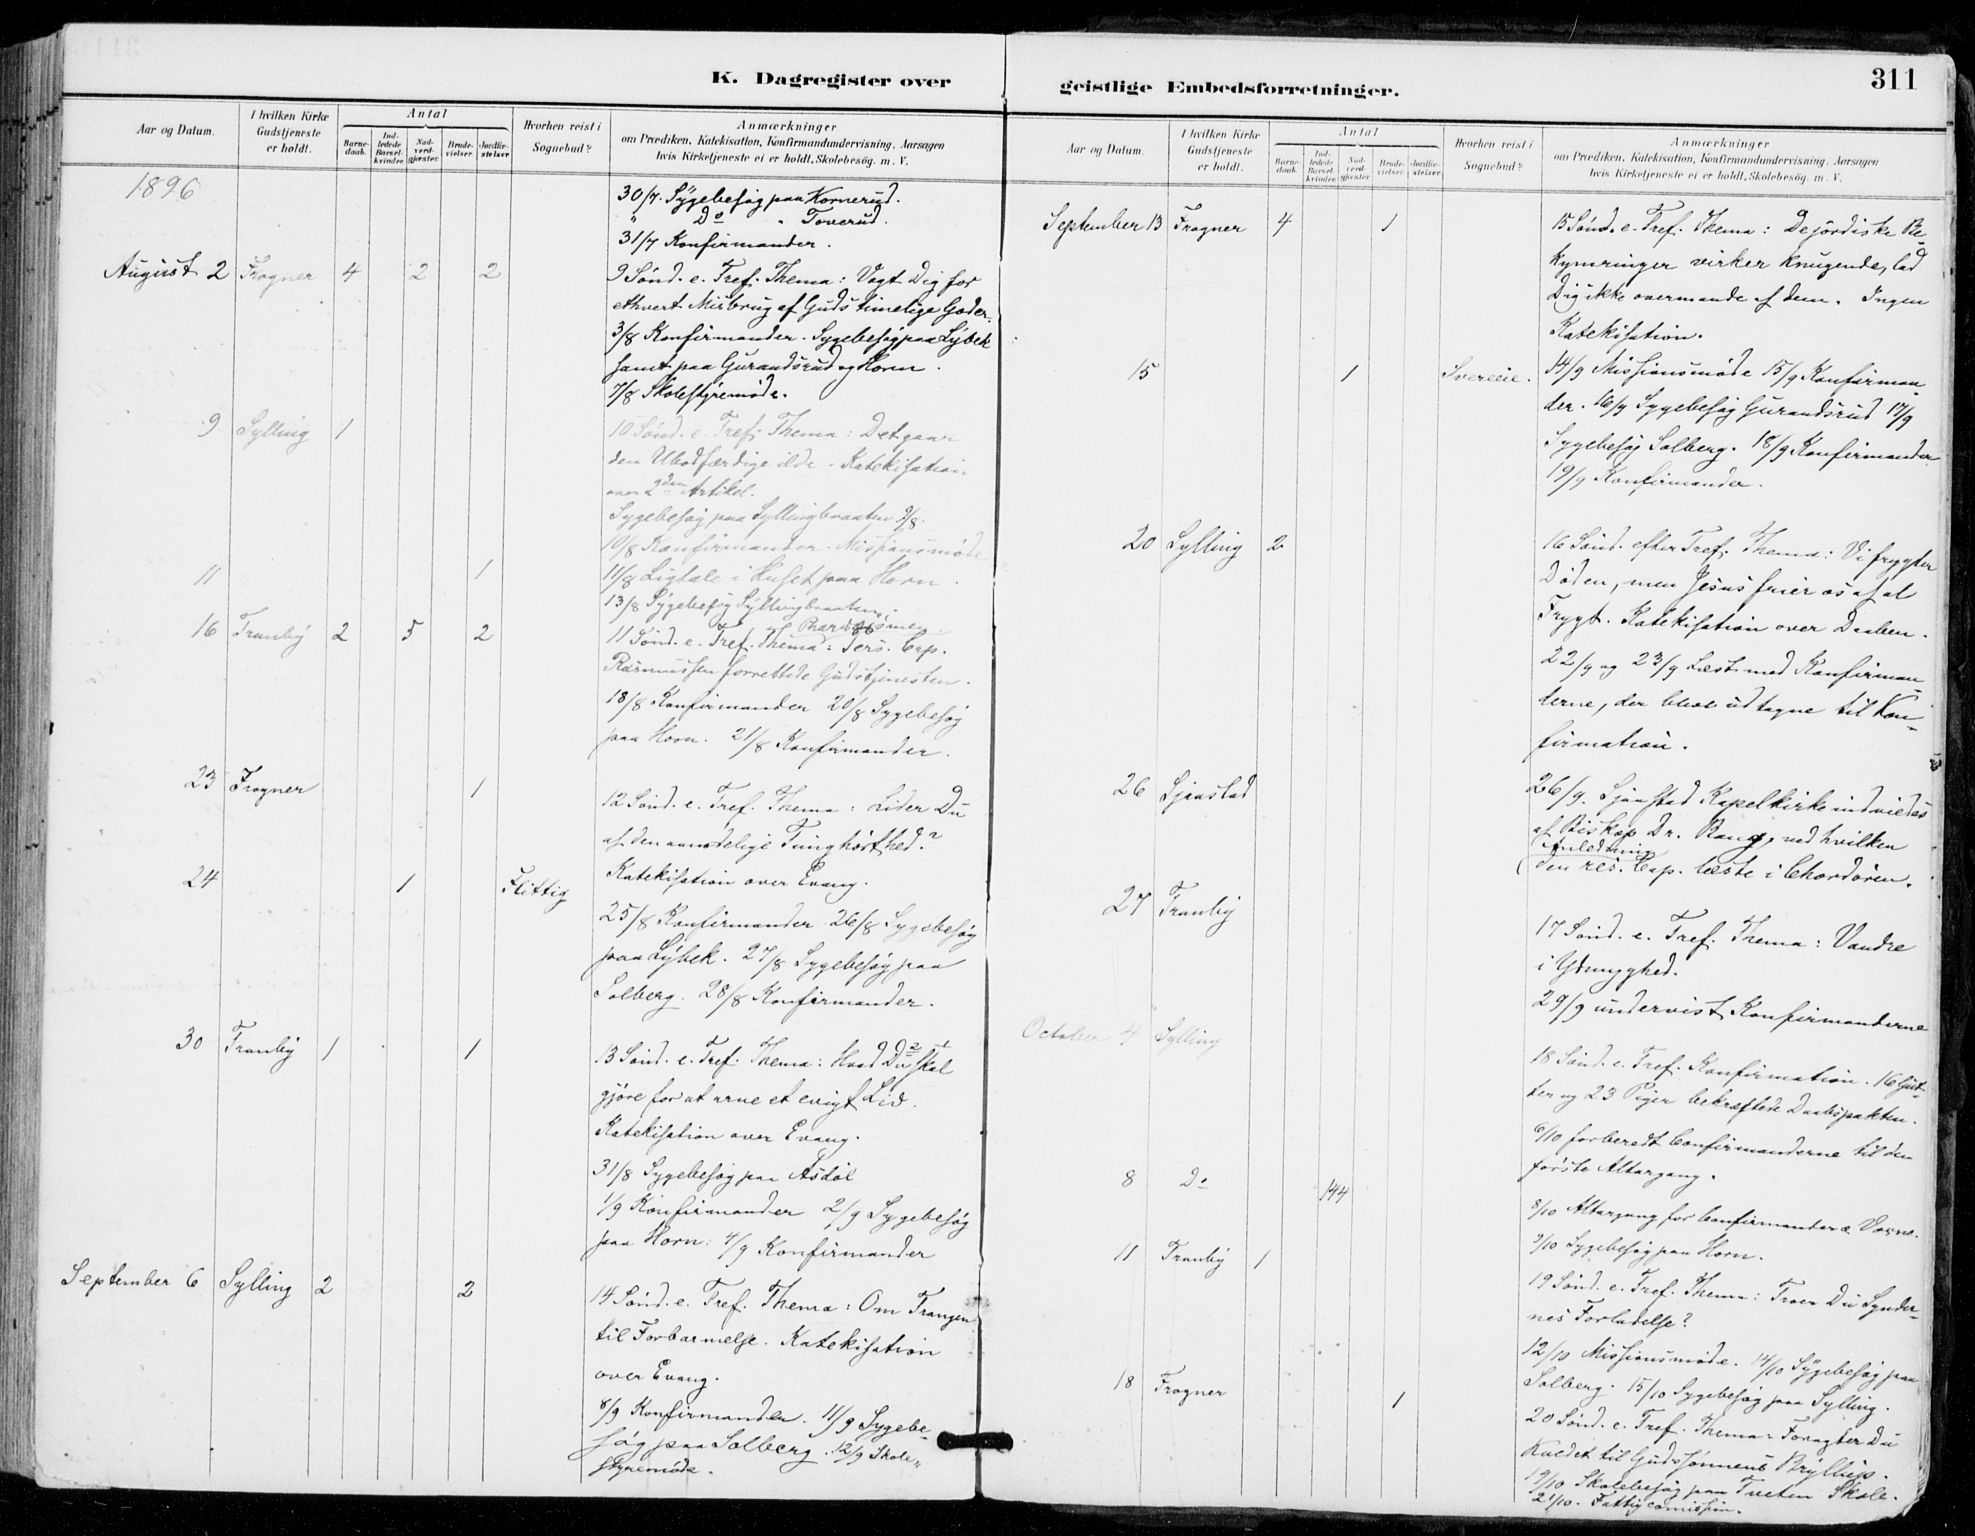 K. Dagregister over
Aar og Datum.
I hvilken Kirke Gudstjeneste er holdt.
Antal
Barnedaab.
Indledede Barselkvinder.
Nadverdgjester.
Brudevielser.
Jordfæstelser
Hvorhen reist i Sognebud?
Anmærkninger
om Prædiken, Katekisation, Konfirmandundervisning, Aarsagen
hvis Kirketjeneste ei er holdt, Skolebesög. m. V.
1896
30/7. Sygebesøg paa Kornerud.
" Do " Toverud.
31/7 Konfirmander.
August 2 Frogner 4 2 2
9 Sønd. e. Tref. Thema: Vogt Dig for
ethvert Misbrug af Guds timelige Goder.
3/8 Konfirmander. Sygebesøg paa Lybek
samt paa Gurandsrud og Horn.
7/8 Skolestyremøde.
9 Sylling 1
10 Sønd. e. Tref. Thema: Det gaar
den Ubodfærdige ilde. Katekisation
over 2den Artikel.
Sygebesøg paa Syllingbraaten 9/8.
10/8 Konfirmander. Missionsmøde
11 1
11/8 Ligtale i Huset paa Horn.
13/8 Sygebesøg Syllingbraaten.
16 Tranby 2 5 2
11 Sønd. e. Tref. Thema: Pers. Cap.
Rasmussen forrettede Gudstjenesten.
18/8 Konfirmander 20/8 Sygebesøg
paa Horn. 21/8 Konfirmander.
23 Frogner 1
12 Sønd. e. Tref. Thema: Lider Du
af den aandelige Tunghørthed?
Katekisation over Evang.
24 1 Flittig
25/8 Konfirmander 26/8 Sygebesøg
paa Lybek. 27/8 Sygebesøg paa
Solberg. 28/8 Konfirmander.
30 Tranby 1 1
13 Sønd. e. Tref. Thema: Hvad Du skal
gjöre for at arve et evigt Liv.
Katekisation over Evang.
31/8 Sygebesøg paa Asdöl
1/9 Konfirmander 2/9 Sygebesøg
paa Horn: 4/9 Konfirmander
September 6 Sylling 2 2
14 Sønd. e. Tref. Thema: Om Trangen
til Forbarmelse. Katekisation
over Evang.
8/9 Konfirmander. 11/9 Sygebe-
søg paa Solberg. 12/9 Skole-
styremøde.
geistlige Embedsforretninger.
311
Aar og Datum.
I hvilken Kirke Gudstjeneste er holdt.
Antal
Barnedaab.
Indledede Barselkvinder.
Nadverdgjester.
Brudevielser.
Jordfæstelser
Hvorhen reist i Sognebud?
Anmærkninger
om Prædiken, Katekisation, Konfirmandundervisning, Aarsagen
hvis Kirketjeneste ei er holdt, Skolebesög. m. V.
September 13 Frogner 4 1
15 Sønd. e. Tref. Thema: De jordiske Be-
kymringer virker knugende, lad
Dig ikke overmande af dem. Ingen
Katekisation.
15 1 Svereie.
14/9 Missionsmøde 15/9 Konfirman-
der. 16/9 Sygebesøg Gurandsrud 17/9
Sygebesøg Solberg. 18/9 Konfirmander
19/9 Konfirmander.
20 Sylling 2
16 Sønd. efter Tref. Thema: Vi frygter
Døden, men Jesus frier os af al
Frygt. Katekisation over Daaben.
22/9 og 23/9 Læst med Konfirman-
derne, der bleve udtagne til Kon-
firmation.
26 Sjaastad
26/9. Sjaastad Kapelkirke indviedes
af Biskop Dr. Bang, ved hvilken
Anledning
den res. Cap. læste i Chordören.
27 Tranby
17 Sønd. e. Tref. Thema: Vandre
i Ydmyghed.
29/9 undervist Konfirmanderne
October 4 Sylling
18 Sønd. e. Tref. Konfirmation. 16 Gut-
ter og 23 Piger bekræftede Daabspakten.
6/10 forberedt Confirmanderne til den
første Altergang.
8 Do 144
8/10 Altergang for Confirmander & Voxne.
9/10 Sygebesøg paa Horn.
11 Tranby 1
19 Sønd. e. Tref. Thema: Troer Du Synder-
nes Forladelse?
12/10 Missionsmøde. 14/10 Sygebesøg paa
Solberg. 15/10 Sygebesøg paa Sylling.
18 Frogner 1
20 Sønd. e. Tref. Thema: Foragter Du
Kaldet til Gudssønnens Bryllup.
19/10 Skolebesøg paa Tveten Skole.
21/10. Fattigcomission.